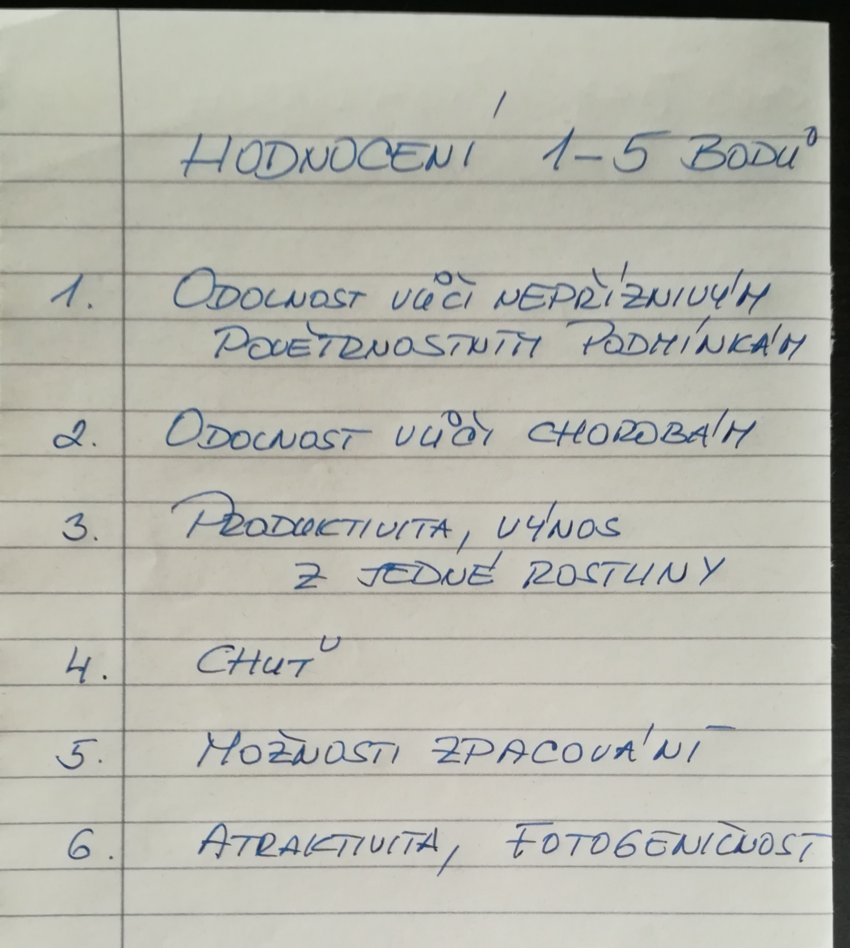 HODNOCENÍ 1-5 BODŮ
1. ODOLNOST VŮČI NEPŘÍZNIVÝM
POVĚTRNOSTNÍM PODMÍNKÁM
2. ODOLNOST VŮČI CHOROBÁM
3. PRODUKTIVITA, VÝNOS
Z JEDNÉ ROSTLINY
4. CHUŤ
5. MOŽNOSTI ZPACOVÁNÍ
6. ATRAKTIVITA, FOTOGENIČNOST